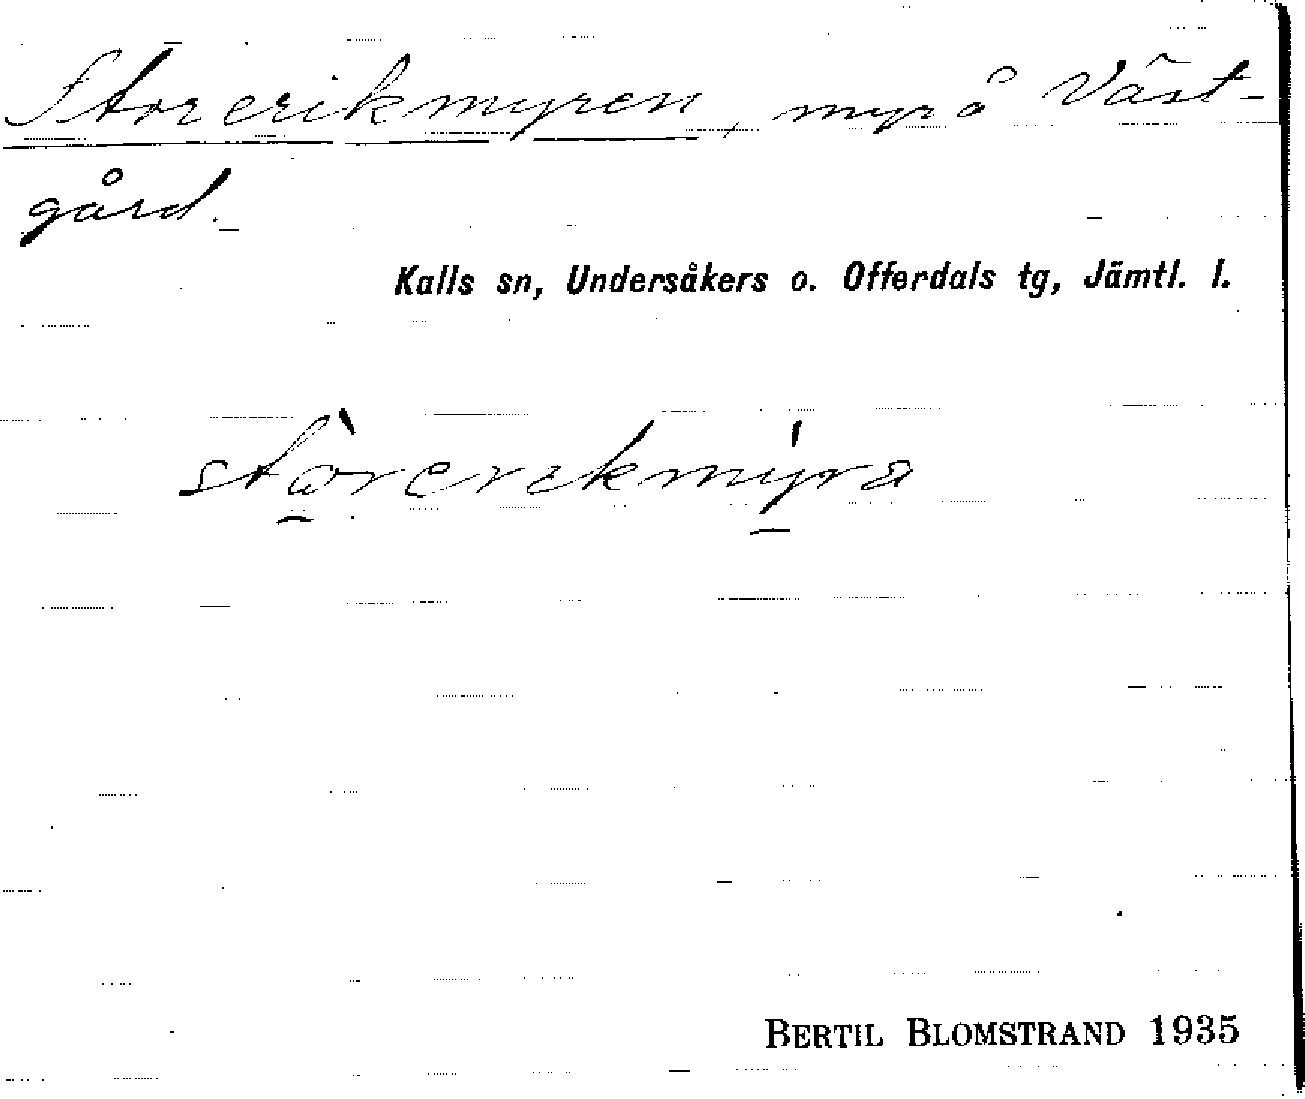 Storerikmyren, myr å Väst-
gård.
Kalls sn, Undersåkers o. Offerdals tg, Jämtl. l.
stὼrerɩkmýra
BERTIL BLOMSTRAND 1935